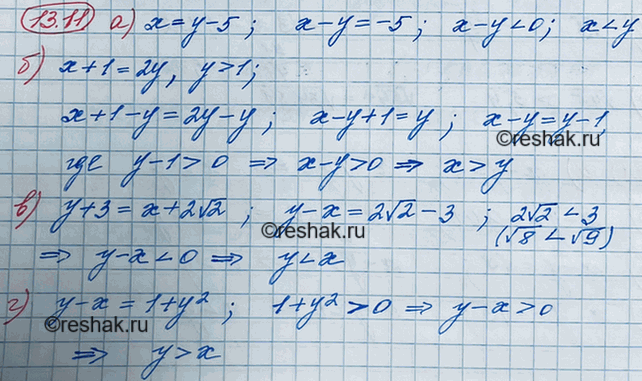 13.11 а) x=y-5; x-y=-5; x-y<0; x<y
б) x+1=2y, y>1;
x+1-y=2y-y; x-y+1=y; x-y=y-1,
©reshak.ru
где y-1>0 ⇒ x-y>0 ⇒ x>y
в) y+3=x+2√2; y-x=2√2-3; 2√2<3
©reshak.ru (√8<√9)
⇒ y-x<0 ⇒ y<x
г) y-x=1+y²; 1+y²>0 ⇒ y-x>0
©reshak.ru
⇒ y>x